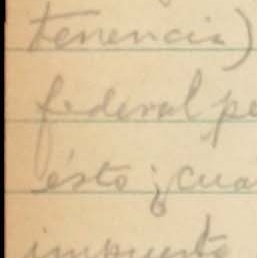 tenencia)
federal pe
ésto; cua
impuesto